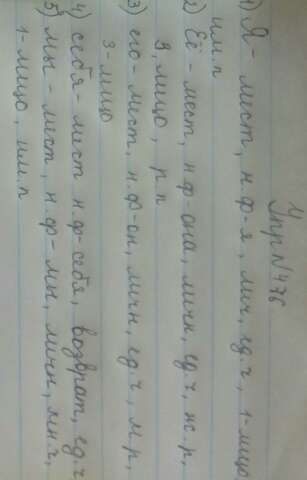 Упр N 476
1) Я - мест, н.ф-я, лич, ед.ч, 1-лицо,
им.п
2) Её - мест, н.ф-она, личн, ед.ч, ж.р,
3, лицо, р.п
3) его - мест, н.ф-он, личн, ед.ч, м.р,
3-лицо
4) себя - мест н.ф-себя, возврат, ед.ч
5) мы - мест, н.ф-мы, личн, мн.ч,
1-лицо, им.п